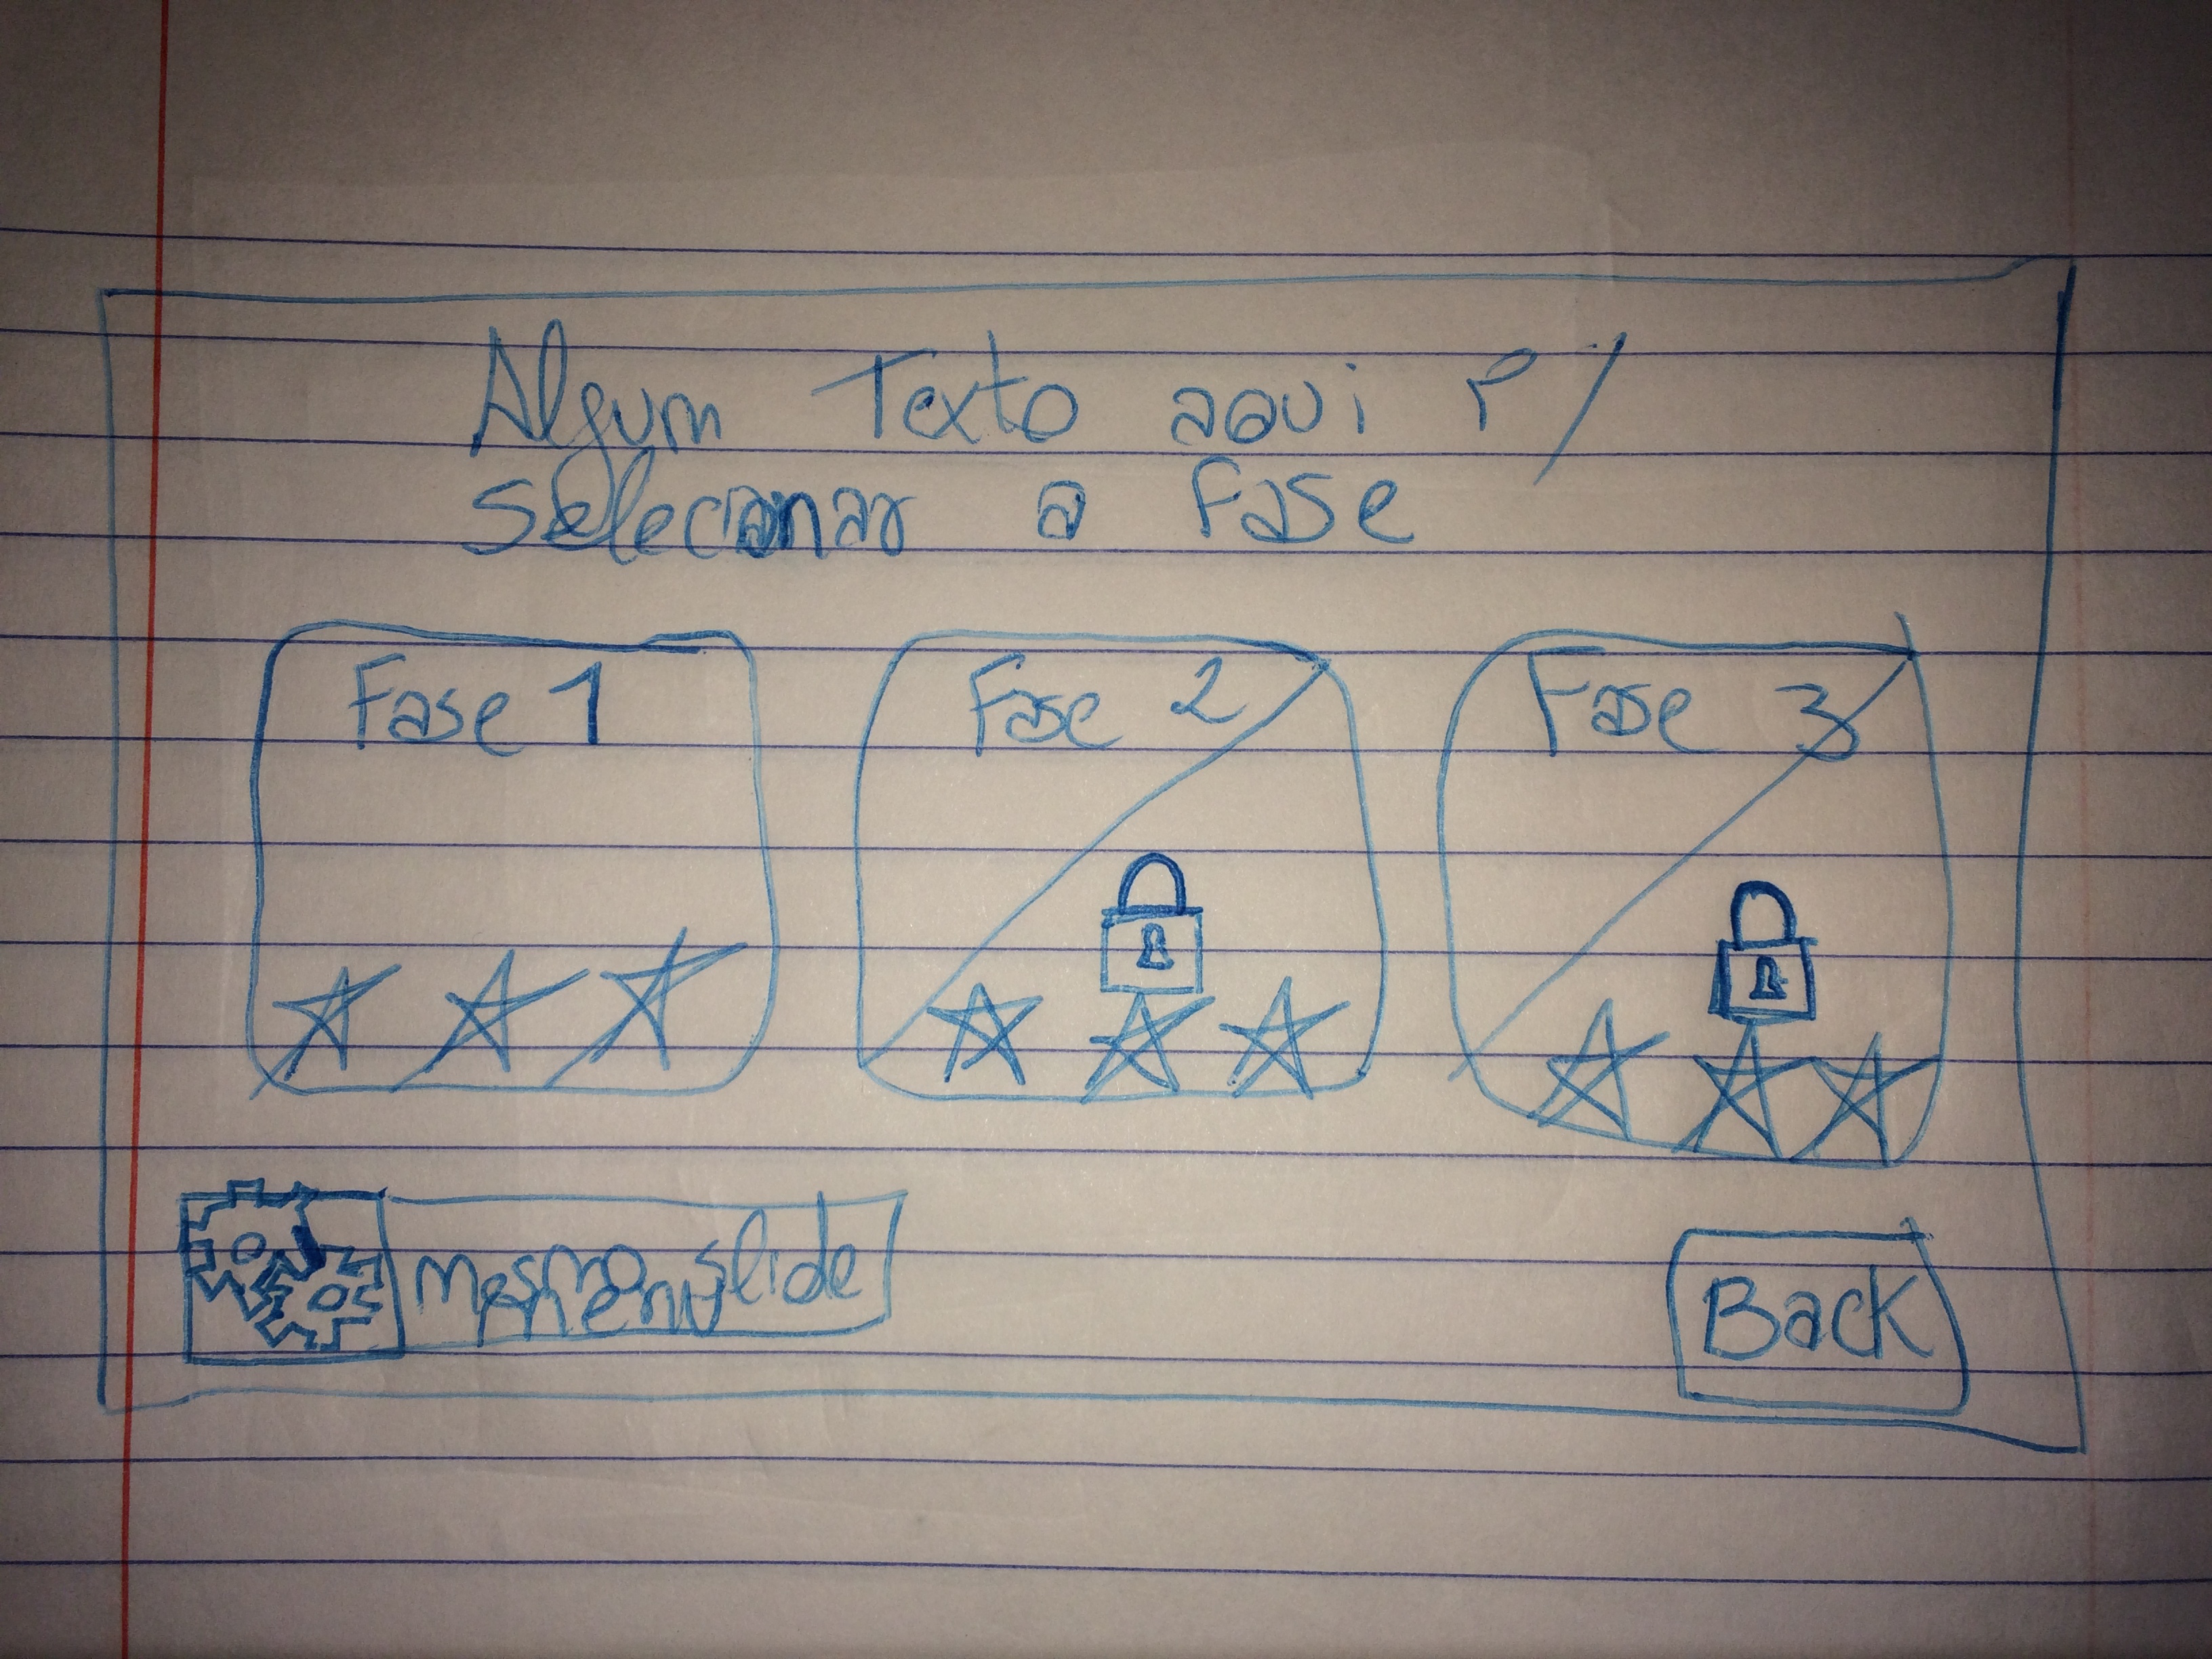 Algum Texto aqui p/
selecionar a fase
Fase 1
Fase 2
Fase 3
mesmo slide
menu
Back